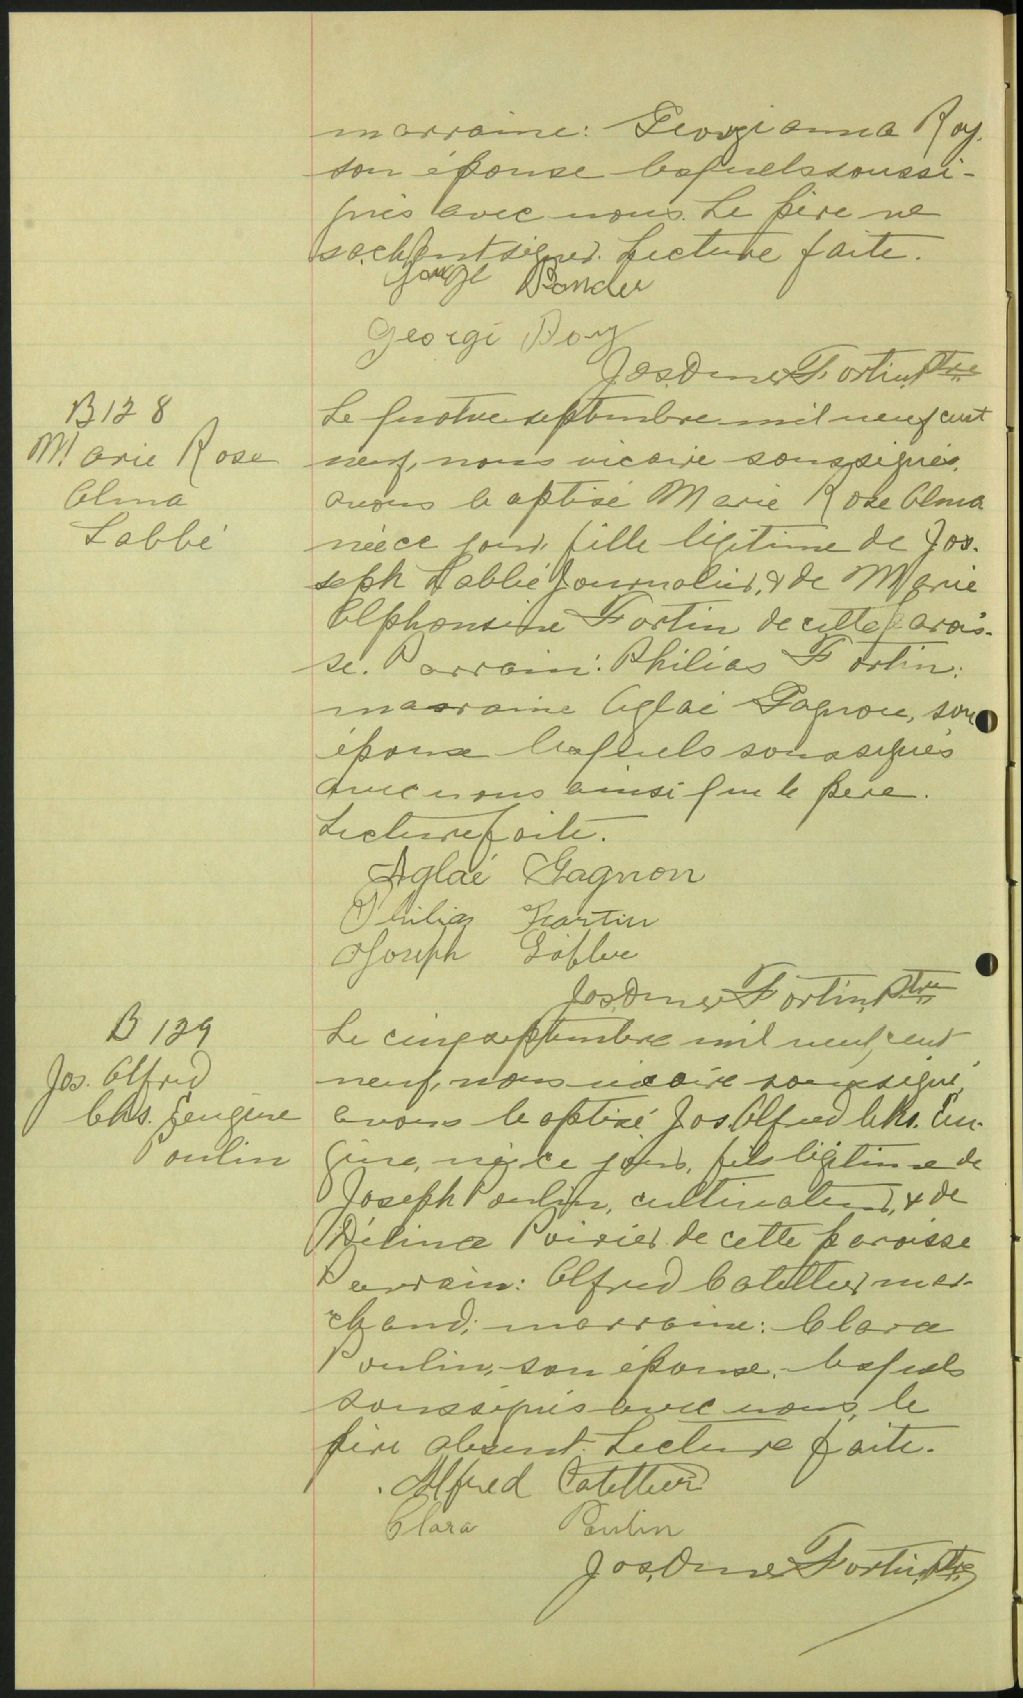 marraine: Georgianna Roy,
son épouse lesquels soussi-
gnés avec nous. Le père ne
sachant signer. Lecture faite.
Georgi Roy
Jos. Omer Fortin, Ptre
B128
Marie Rose
Alma
Labbé
Le quatre septembre mil neuf cent
neuf, nous vicaire soussigné,
avons baptisé Marie Rose Alma
née ce jour, fille légitime de Jos-
seph Labbé Journalier, & de Marie
Alphonsine Fortin de cette parois-
se. Parrain: Philias Fortin:
marraine Aglaé Gagnon, son
épouse lesquels soussignés
avec nous ainsi que le père.
Lecture faite.
Aglaé Gagnon
Philias Fortin
Joseph
Jos. Omer Fortin, Ptre
B 129
Jos. Alfred
Chs. Eugène
Poulin
Le cinq septembre mil neuf cent
neuf, nous vicaire soussigné,
avons baptisé Jos. Alfred Chs. Eu-
gène, né ce jour, fils légitime de
Joseph Poulin, cultivateur, & de
Délina Poirier de cette paroisse
Parrain: Alfred Catellier mar-
chand; marraine: Clara
Poulin, son épouse, lesquels
soussignés avec nous, le
père absent. Lecture faite.
Alfred Catellier
Clara Poulin
Jos. Omer Fortin, Ptre